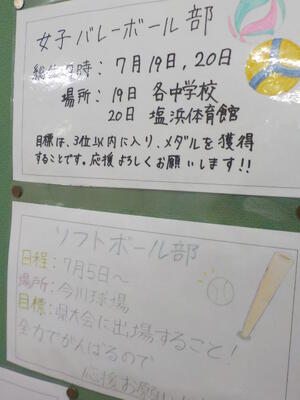 女子バレーボール部
総体日時：7月19日,20日
場所：19日 各中学校
20日 塩浜体育館
目標は、3位以内に入り、メダルを獲得
することです。応援よろしくお願いします!!
ソフトボール部
日程：7月5日～
場所：今川球場
目標：県大会に出場すること！
全力でがんばるので
応援お願いします